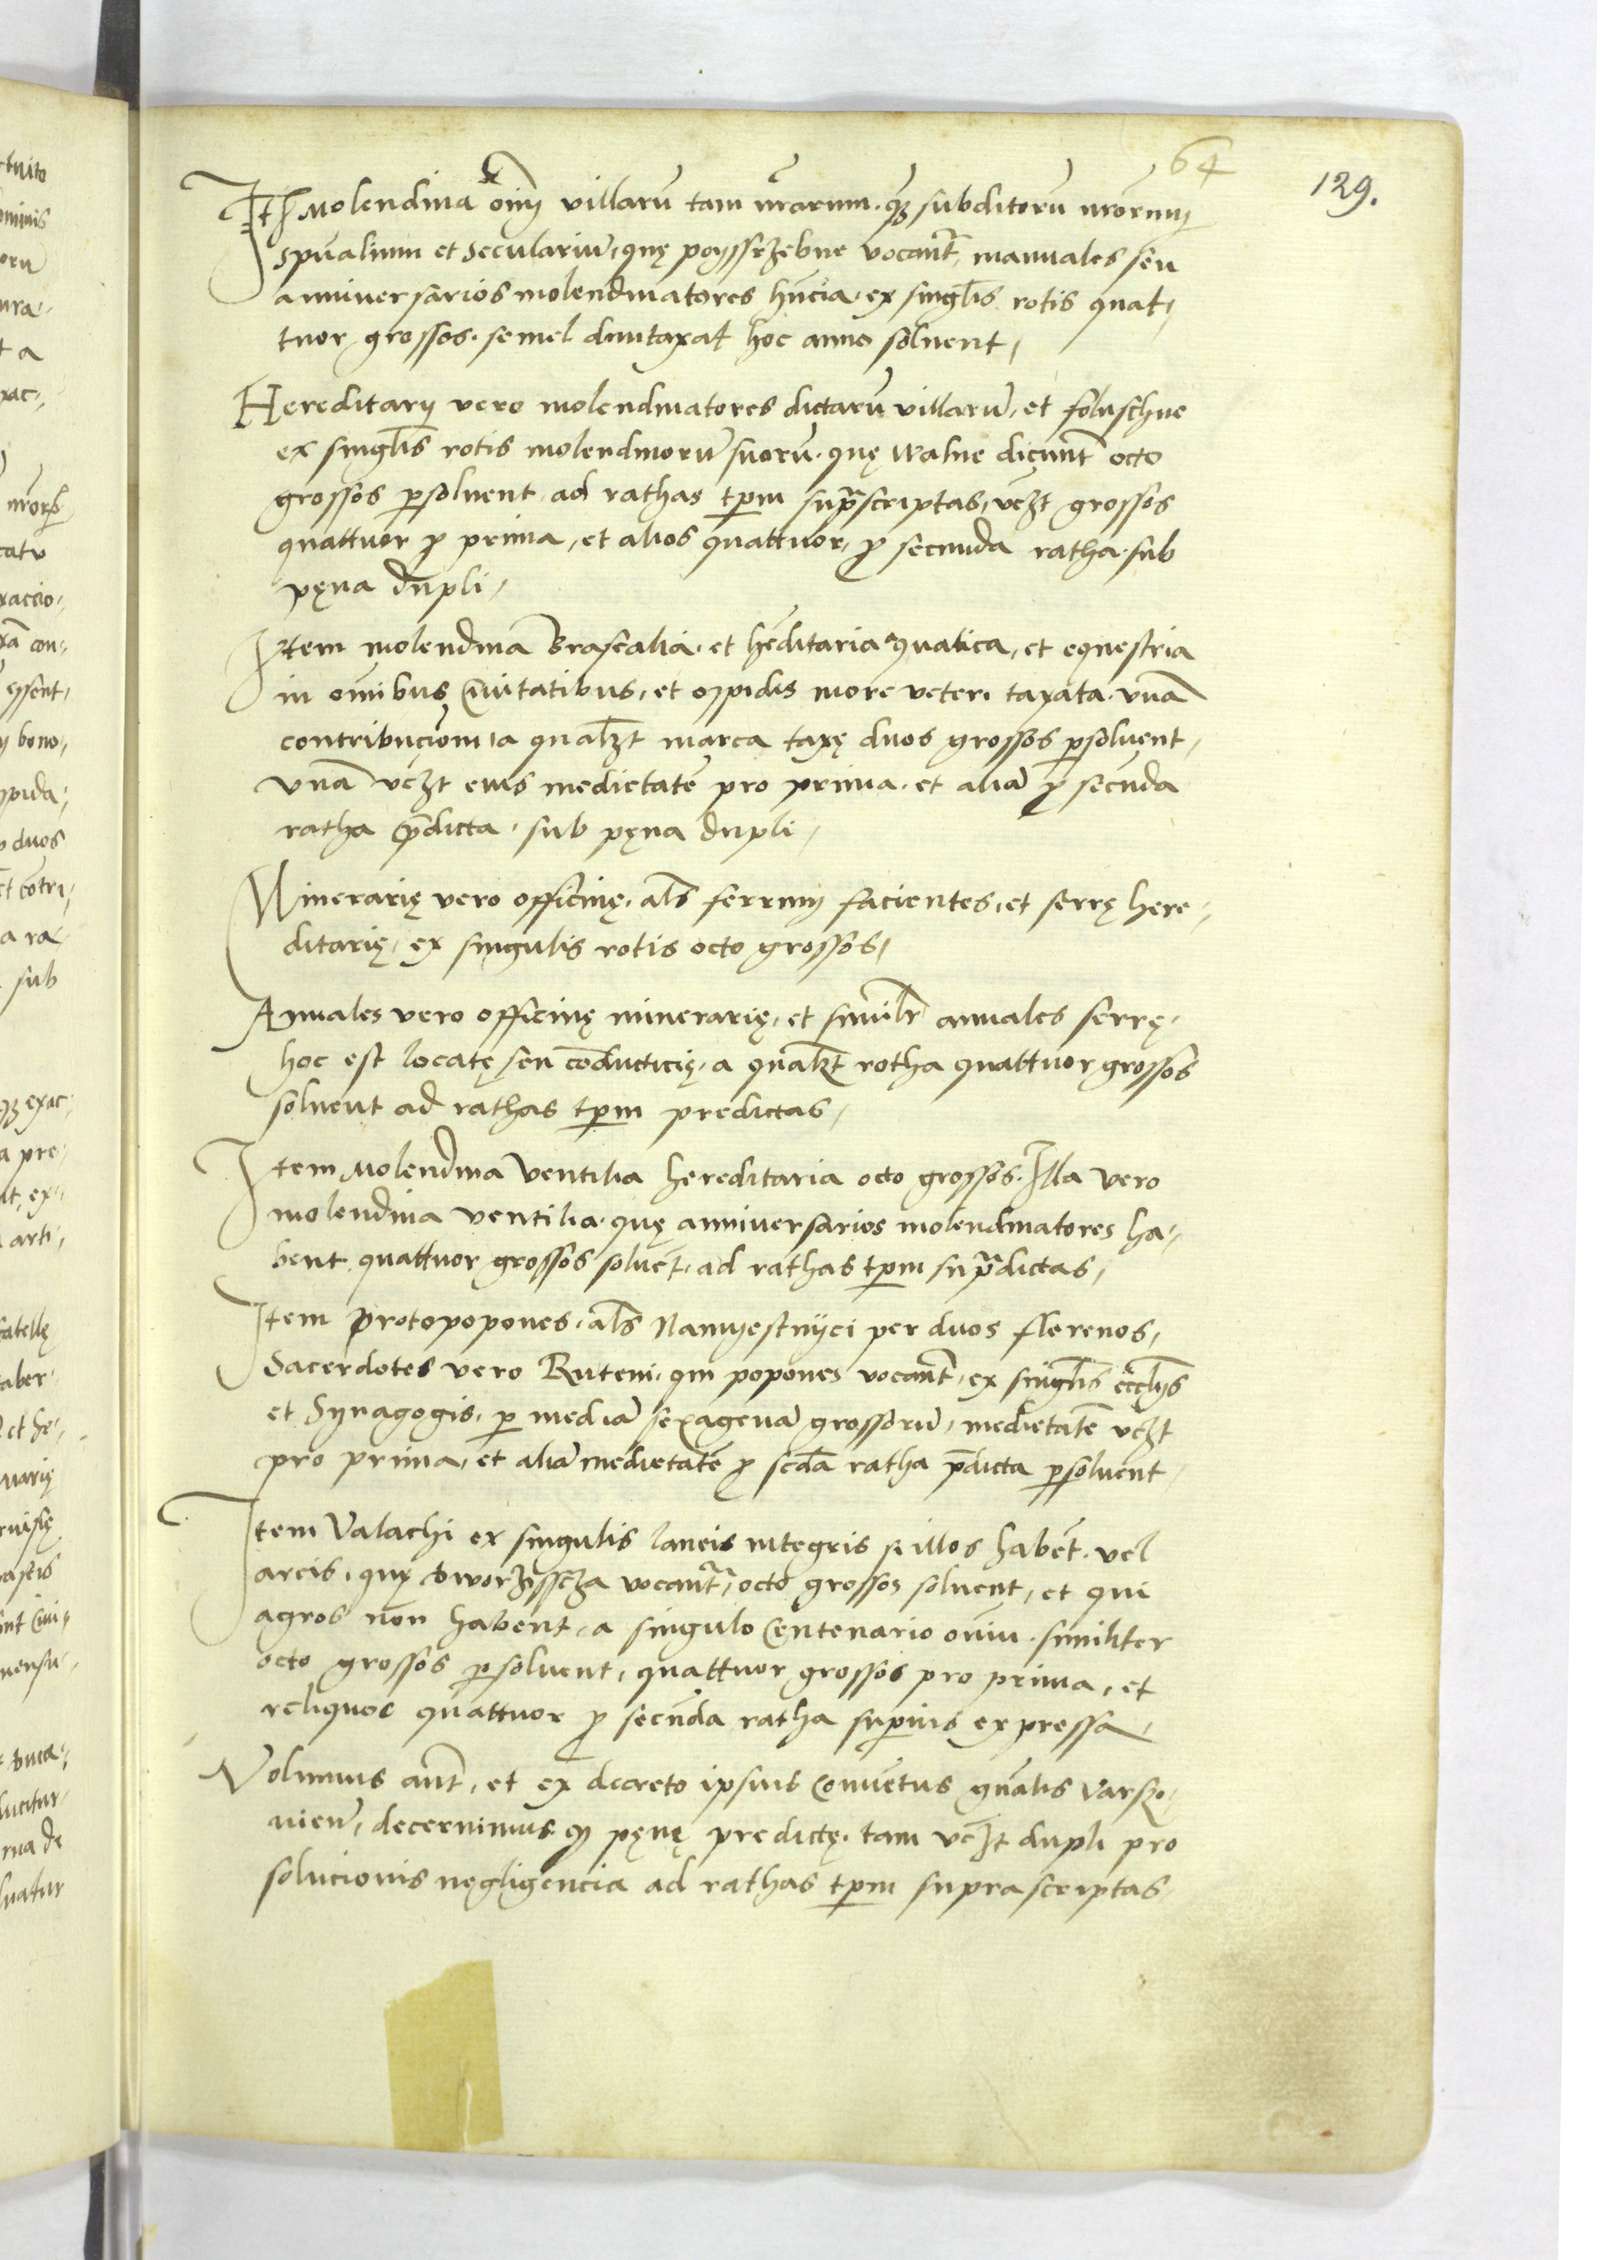 64
129.
Itē Molendina om̄ villarū tam nr̄arum. q̄ȝ subditorū nr̄orum
spūalium et Seculariū, quę poyssrzebne vocant̄, manuales seu
anniversarios molendinatores hn̄cia, ex singl̄is rotis quat,
tuor grossos. semel duntaxat hoc anno solvent,
Hereditarij vero molendinatores dictarū villarū, et foluschne
ex singl̄is rotis molendinorū suorū. quę walne dicunt̄ octo
grossos p̱solvent ad rathas tp̄m sup̄scriptas, vcȝt grossos
quattuor ꝓ prima, et alios quattuor, ꝓ secunda ratha. sub
pęna dupli,
Item molendina Brasealia. et hēditaria aquatica, et equestria
in omībus Civitatibus, et oppidis more veteri taxata. vnā
contribucionē, a qualȝt marca taxę duos grossos p̱solvent,
vnā vcȝt eius medietatē pro prima. et aliā ꝓ secūda
ratha p̄dicta. sub pęna dupli,
Minerarię vero officinę, al̄s ferrum facientes, et serrę here,
ditarię, ex singulis rotis octo grossos,
Annales vero officinę minerarię, et simil̄r annales serrę,
hoc est locatę seu cōducticię, a qualȝt rotha quattuor grossos
solvent ad rathas tp̄m predictas,
Item Molendina Ventilia hereditaria octo grossos. Illa vero
molendina ventilia. quę anniversarios molendinatores ha,
bent quattuor grossos solvēt, ad rathas tp̄m sup̄dictas,
Item Protopopones, al̄s Namyestnijci per duos florenos,
Sacerdotes vero Ruteni. qui popones vocant̄, ex singl̄is eccl̄ijs
et Synagogis, p̱ mediā sexagenā grossorū, medietatē vcȝt
pro prima, et aliā medietatē ꝓ secd̄a ratha p̄dicta p̱solvent,
Item Valachi ex singulis laneis integris si illos habēt. vel
areis, quę dworzysscza vocant̄, octo grossos solvent, et qui
agros non habent, a singulo Centenario oviū. similiter
octo grossos p̱solvent, quattuor grossos pro prima, et
reliquos quattuor ꝓ secūda ratha sup̱ius expressa,
Volumus aūt, et ex decreto ipsius Conuētus gn̄alis Varscho,
vien̄, decernimus. qȝ pęnę predictę. tam vcȝt dupli pro
solucionis negligencia ad rathas tp̄m suprascriptas,